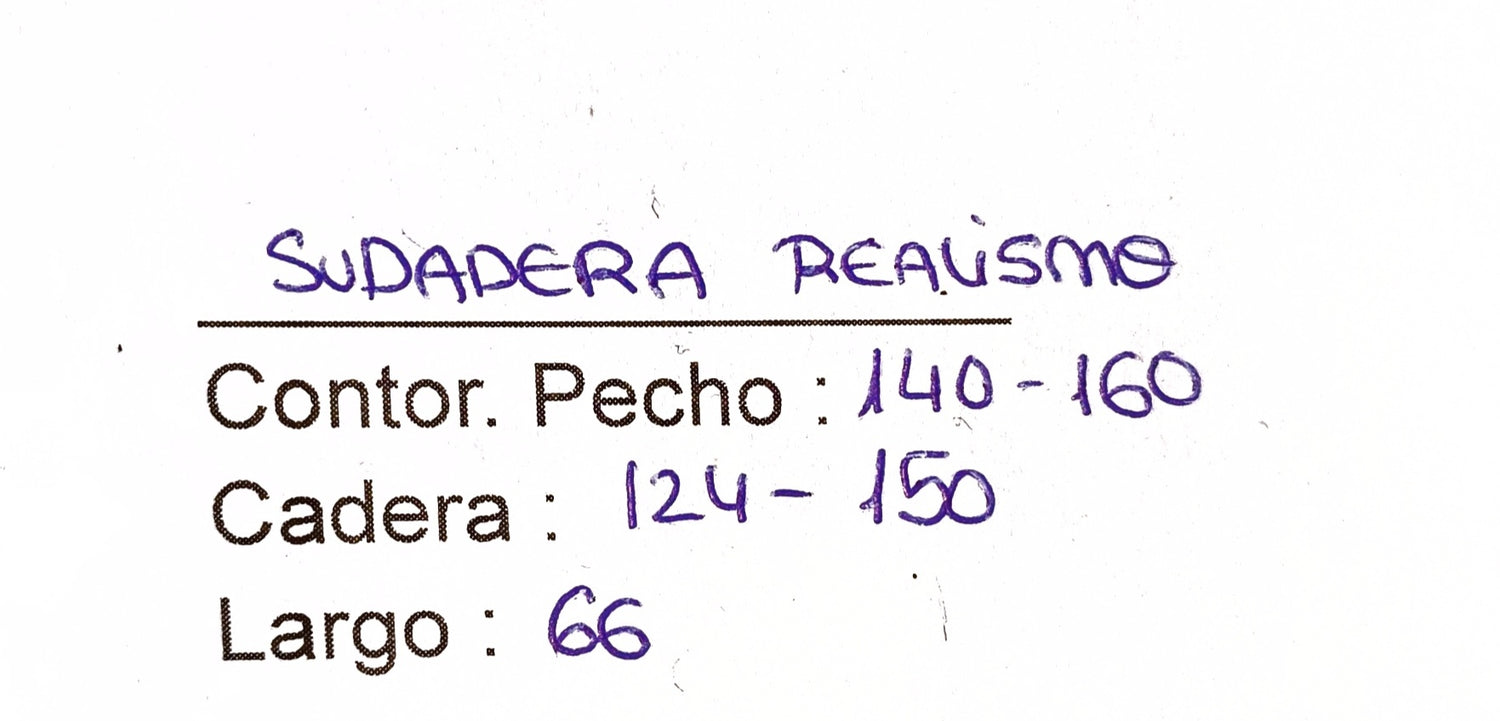 SUDADERA REALiSMO
Contor. Pecho : 140 - 160
Cadera : 124 - 150
Largo : 66